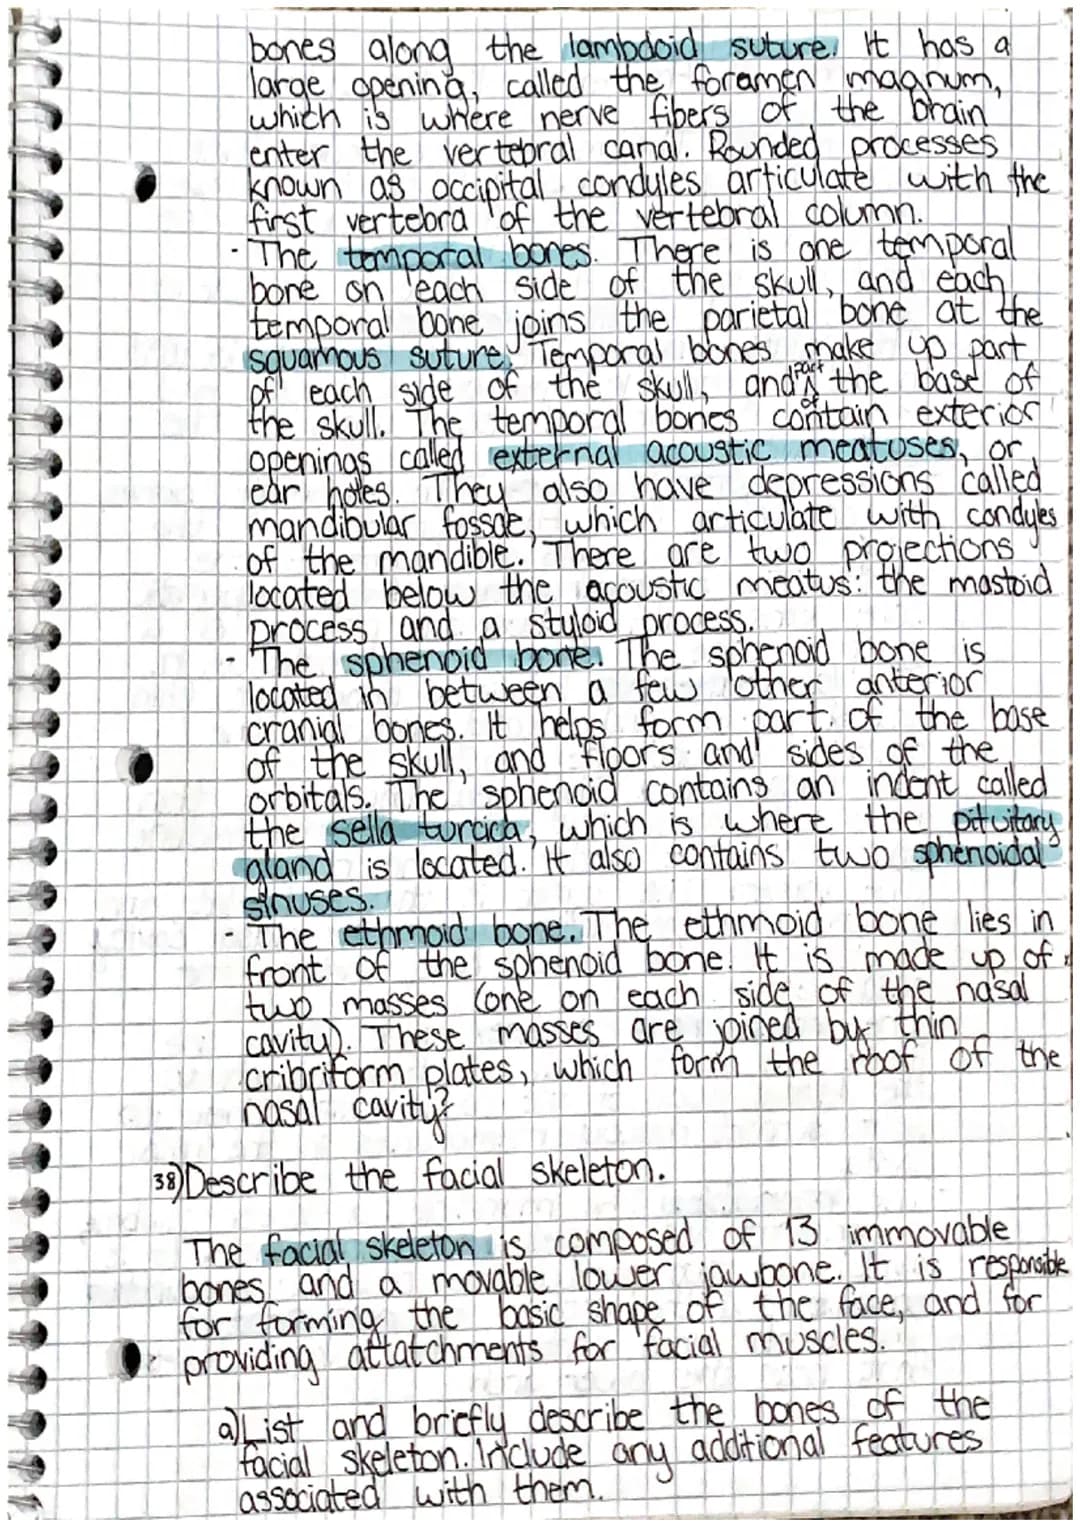 bones along the lambdoid suture. It has a
large opening, called the foramen magnum,
which is where nerve fibers of the brain
enter the vertebral canal. Rounded processes
known as occipital condyles articulate with the
first vertebra of the vertebral column.
- The temporal bones. There is one temporal
bone on each side of the skull, and each
temporal bone joins the parietal bone at the
squamous suture. Temporal bones make up part
of each side of the skull, and part of the base of
the skull. The temporal bones contain exterior
openings called external acoustic meatuses, or
ear holes. They also have depressions called
mandibular fossae, which articulate with condyles
of the mandible. There are two projections
located below the acoustic meatus: the mastoid
process and a styloid process.
- The sphenoid bone. The sphenoid bone is
located in between a few other anterior
cranial bones. It helps form part of the base
of the skull, and floors and sides of the
orbitals. The sphenoid contains an indent called
the sella turcica, which is where the pituitary
gland is located. It also contains two sphenoidal
sinuses.
- The ethmoid bone. The ethmoid bone lies in
front of the sphenoid bone. It is made up of
two masses (one on each side of the nasal
cavity). These masses are joined by thin
cribriform plates, which form the roof of the
nasal cavity?
38) Describe the facial skeleton.
The facial skeleton is composed of 13 immovable
bones and a movable lower jawbone. It is responsible
for forming the basic shape of the face, and for
providing attatchments for facial muscles.
a) List and briefly describe the bones of the
facial skeleton. Include any additional features
associated with them.